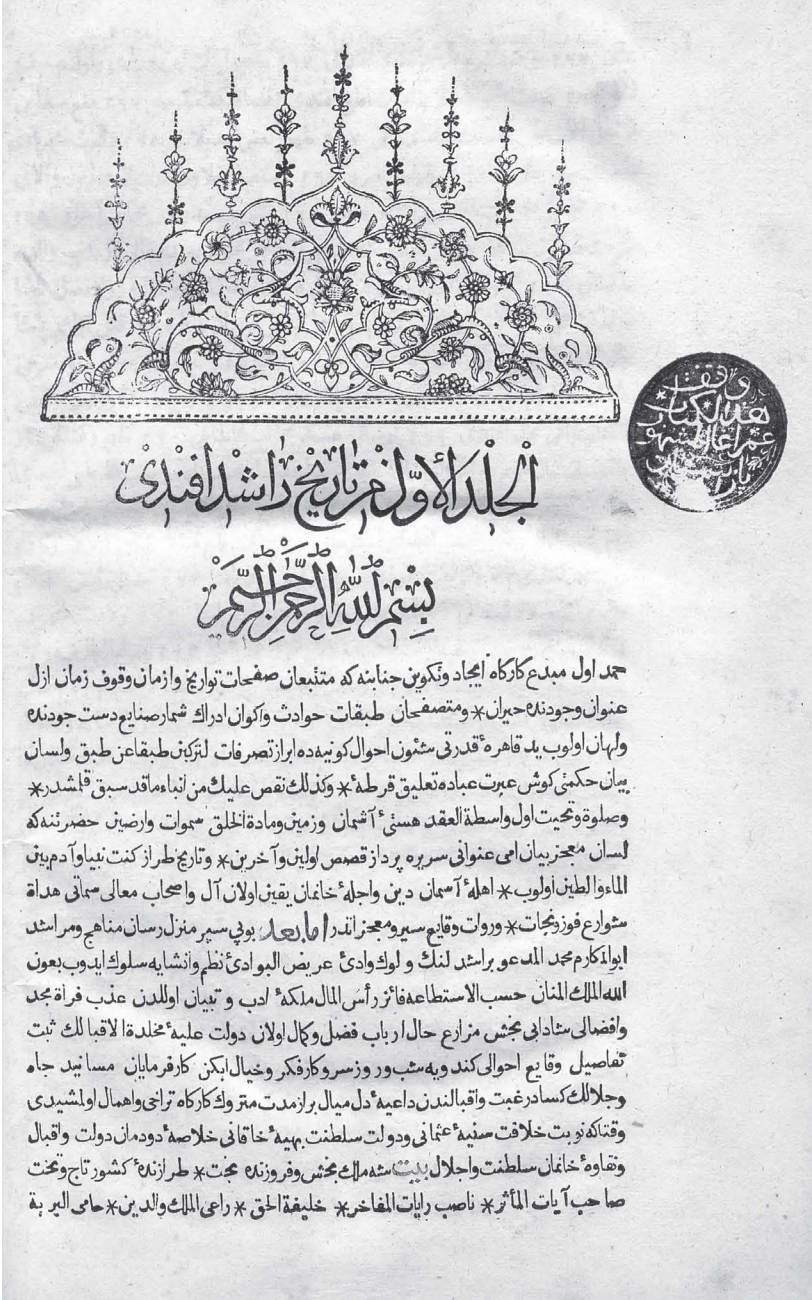 الجلد الأول من تاريخ راشد افندى
بسم الله الرحمن الرحيم
حمد اول مبدع كاركاه ايجاد وتكوين جنابنه كه متتبعان صفحات تواريخ وازمان وقوف زمان ازل
عنوان وجودنده حيران * ومتصفحان طبقات حوادث واكوان ادراك شمار صنايع دست جودنده
ولهان اولوب يد قاهرهٔ قدرتى شئون احوال كونيه ده ابراز تصرفات لتركبن طبقا عن طبق ولسان
بيان حكمتى كوش عبرت عباده تعليق قرطهٔ * وكذلك نقص عليك من انباء ما قد سبق قلمشدر *
وصلوة وتحيت اول واسطة العقد هستئ آسمان وزمين ومادة الخلق سموات وارضين حضرتنه كه
لسان معجز بيان امى عنوانى سريره پرداز قصص اولين وآخرين * وتاريخ طراز كنت نبيا وآدم بين
الماء والطين اولوب * اهلهٔ آسمان دين واجلهٔ خاندان يقين اولان آل واصحاب معالى سماتى هداة
شوارع فوز ونجات * وروات وقايع سير ومعجزاتدر اما بعد بوپى سپر منزل رسان مناهج ومراشد
ابوالمكارم محمد المدعو براشد لنك ولوك وادئ عريض البوادئ نظم وانشايه سلوك ايدوب بعون
الله الملك المنان حسب الاستطاعه فائز رأس المال ملكهٔ ادب وتبيان اوللدن عذب فراة مجد
وافضالى شادابى بخش مزارع حال ارباب فضل وكمال اولان دولت عليهٔ مخلدة الاقبالك ثبت
تفاصيل وقايع احوالى كندويه شب وروز سر وكار فكر وخيال ايكن كارفرمايان مسانيد جاه
وجلالك كساد رغبت واقبالندن داعيهٔ دل ميال برازمدت متروك كاركاه تراخى واهمال اولمشيدى
وقتاكه نوبت خلافت سنيهٔ عثمانى ودولت سلطنت بهيهٔ خاقانى خلاصهٔ دودمان دولت واقبال
ونقاوهٔ خاندان سلطنت واجلال بيت شه ملك بخش وفروزنده بخت * طرازندهٔ كشور تاج وتخت
صاحب آيات المأثر * ناصب رايات المفاخر * خليفة الحق * راعى الملك والدين * حامى البرية
وقف
هذا الكتاب